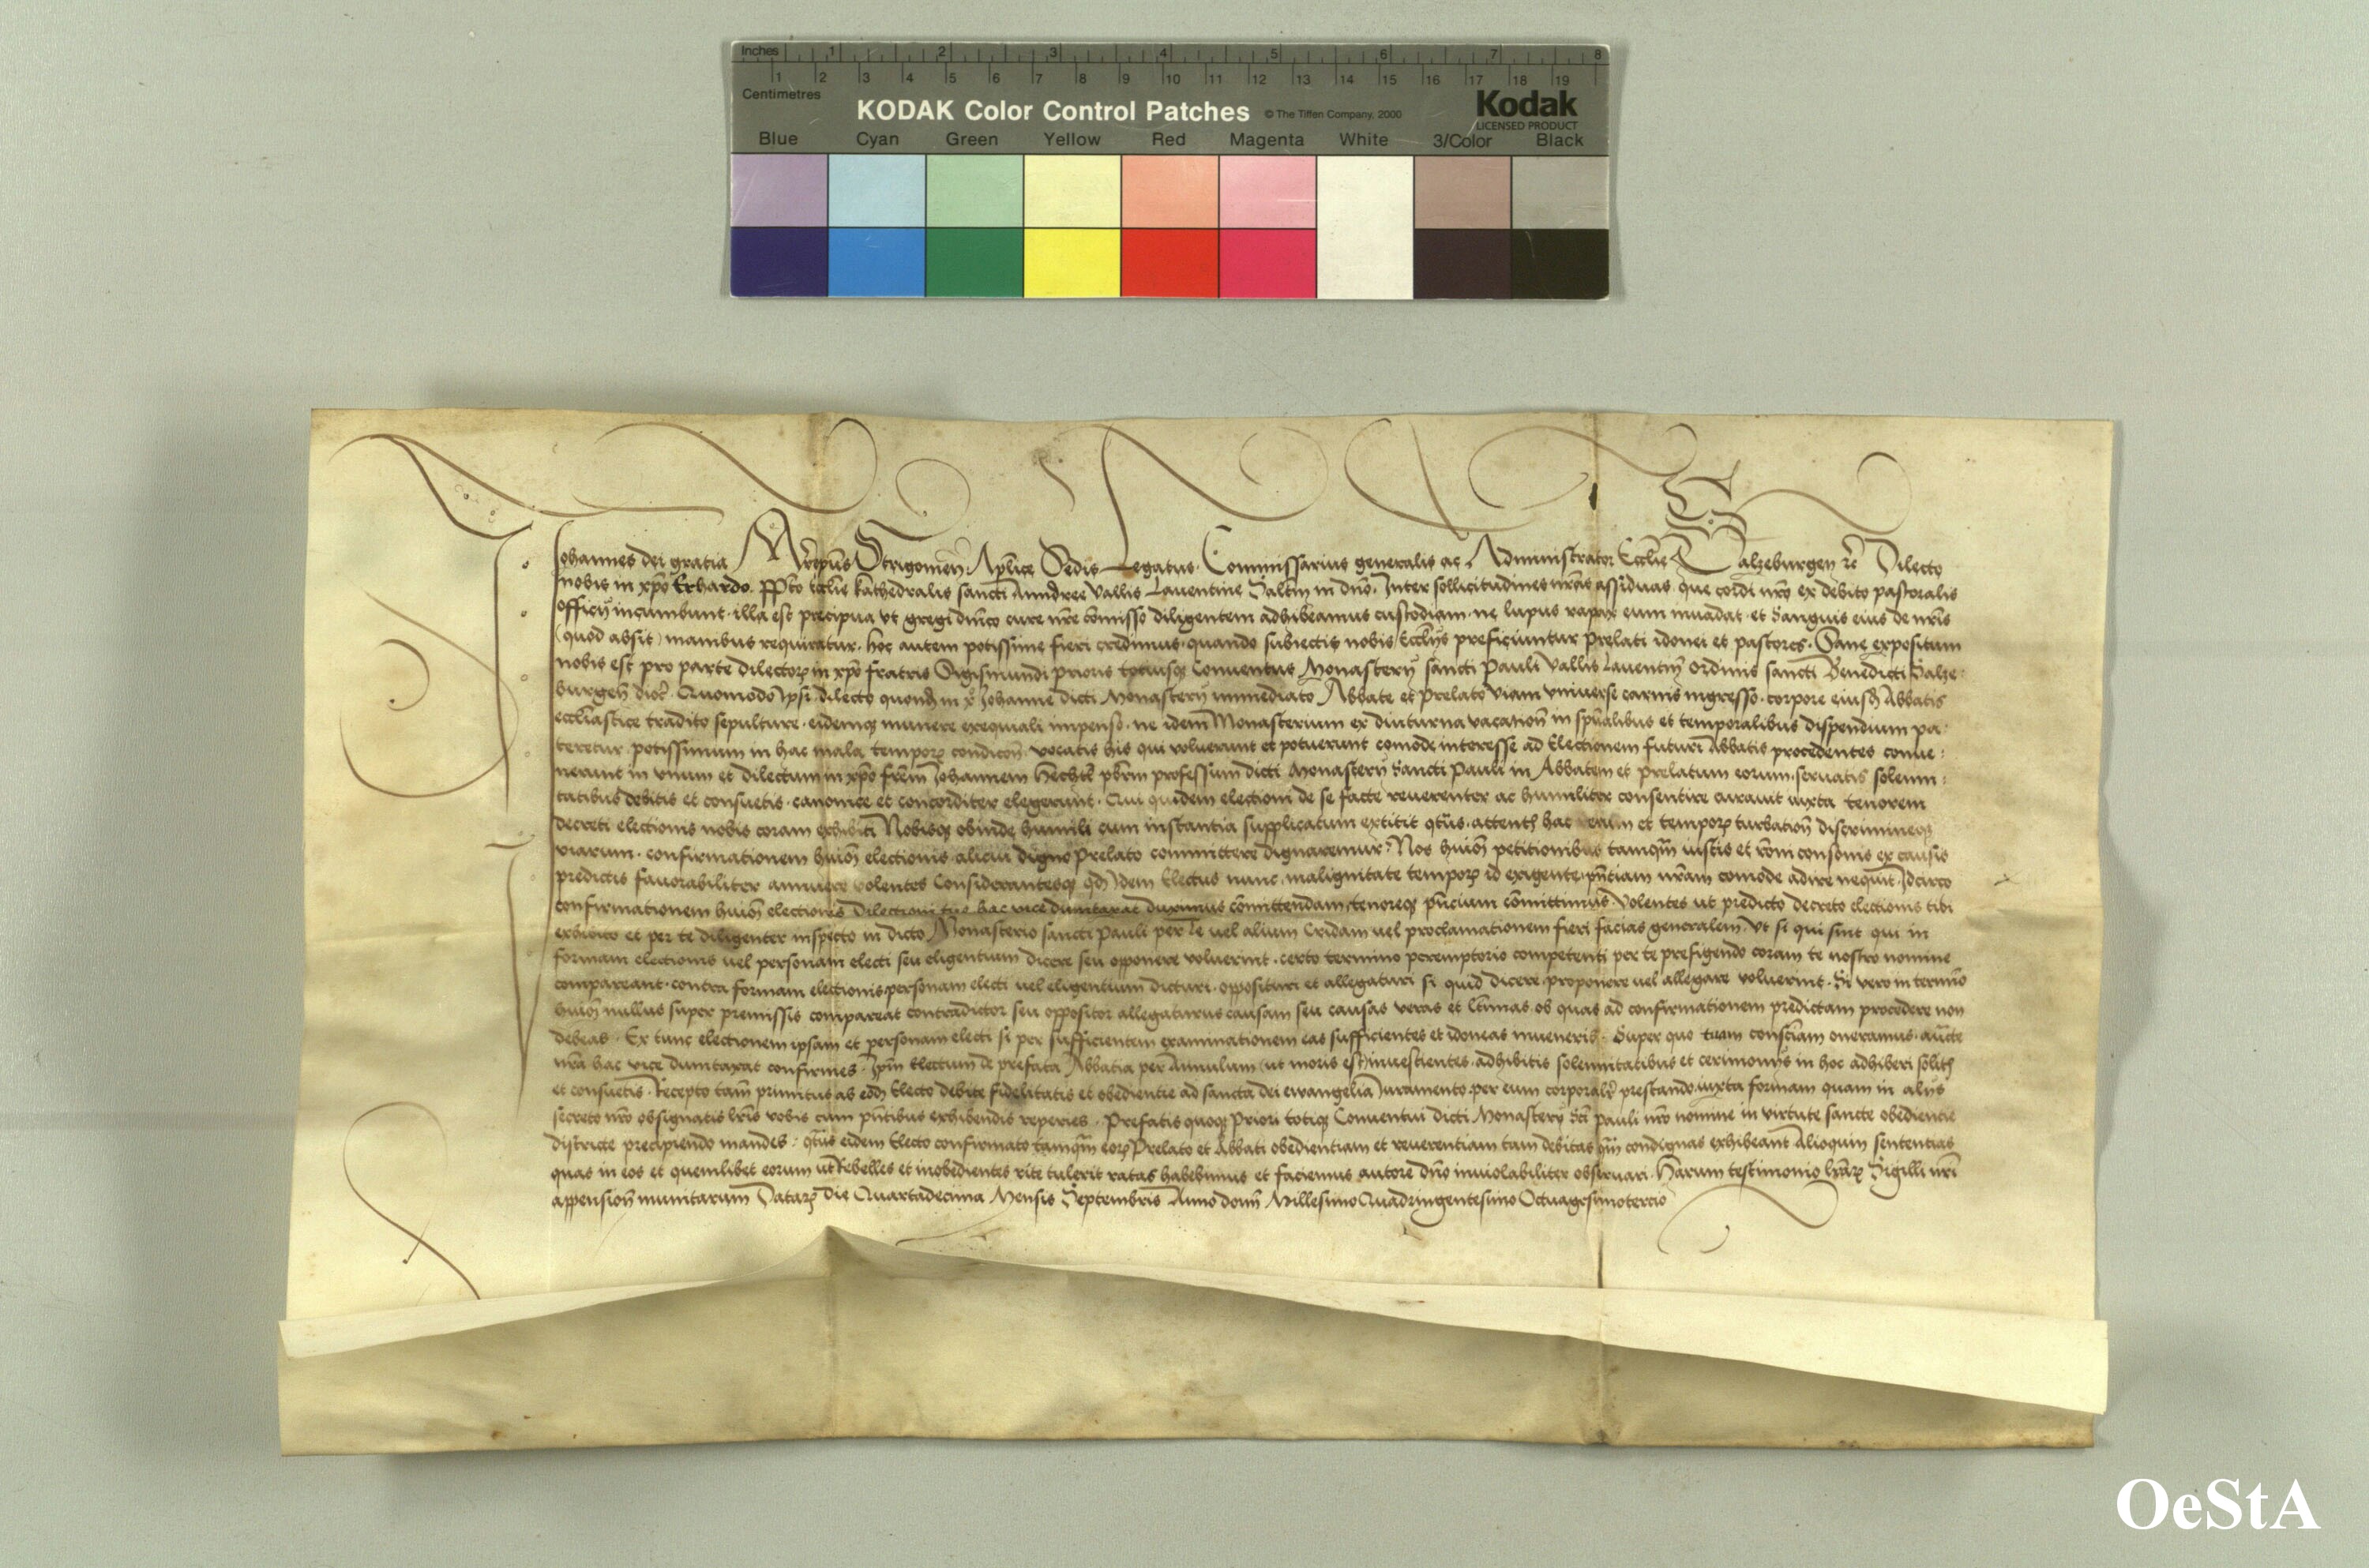 Inches 1 2 3 4 5 6 7 8
1 2 3 4 5 6 7 8 9 10 11 12 13 14 15 16 17 18 19
Centimetres
KODAK Color Control Patches © The Tiffen Company, 2000 Kodak
LICENSED PRODUCT
Blue Cyan Green Yellow Red Magenta White 3/Color Black
Johannes dei gratia Archiep̄us Strigonien̄ Ap̄lice Sedis Legatus Commissarius generalis ac Administrator Eccl̄ie Salzeburgen̄ rē Dilecto
nobis in xp̄o Erhardo p̄p̄to eccl̄ie kathedralis sancti Anndree Vallis Lauentine Salt̄m in dn̄o. Inter sollicitudines nr̄as assiduas que cordi nr̄o ex debito pastoralis
officij incumbunt illa est precipua vt gregi dn̄ico cure nr̄e com̄isso diligentem adhibeamus custodiam ne lupus rapax eum inuadat et Sanguis eius de nr̄is
(quod absit) manibus requiratur. hoc autem potissime fieri credimus quando subiectis nobis Eccl̄ijs preficiuntur prelati idonei et pastores. Sane expositum
nobis est pro parte dilectoꝝ in xp̄o fratris Sigismundi prioris totiusqꝫ Conuentus Monasterij sancti Pauli Vallis Lauentin̄ ordinis sancti Benedicti Salze-
burgen̄ dioc̄. Quomodo ip̄si dilecto quond̄ in xp̄o Johanne dicti Monasterij immediato Abbate et prelato viam vniuerse carnis ingresso corpore eiusd̄ Abbatis
eccl̄iastice tradito sepulture eidemqꝫ munere exequiali impenso ne idem Monasterium ex diuturna vacation̄ in sp̄ualibus et temporalibus dispendium pa-
teretur potissimum in hac mala tempoꝝ condicōn̄ vocatis his qui voluerunt et potuerunt comode interesse ad Electionem futuri Abbatis procedentes conue-
nerunt in vnum et dilectum in xp̄o frēm Johannem Hechtl pb̄rm professum dicti Monasterij Sancti Pauli in Abbatem et prelatum eorum seruatis solenni-
tatibus debitis et consuetis canonice et concorditer elegerunt. Qui quidem electioni de se facte reuerenter ac humiliter consentire curauit iuxta tenorem
decreti electionis nobis coram exhibiti Nobisqꝫ obinde humili cum instantia supplicatum extitit qt̄us attent̄ hac rerum et tempoꝝ turbation̄ discrimineqꝫ
viarum confirmationem huiōi electionis alicui digno Prelato committere dignaremur. Nos huiōi petitionibus tamq̄m iustis et rōni consonis ex causis
predictis fauorabiliter annuere volentes Considerantesqꝫ qd̄ Idem Electus nunc malignitate tempoꝝ id exigente pn̄tiam nr̄am comode adire nequit Idcirco
confirmationem huiōi electionis Dilectioni tue hac vice dumtaxat duximus com̄ittendam tenoreqꝫ pn̄cium com̄ittimus Volentes ut predicto decreto electionis tibi
exhibito et per te diligenter inspecto in dicto Monasterio sancti Pauli per Te vel alium Cridam vel proclamationem fieri facias generalem Vt si qui sint qui in
formam electionis vel personam electi seu eligentium dicere seu opponere voluerint certo termino peremptorio competenti per te prefigendo coram te nostro nomine
compareant contra formam electionis personam electi vel eligentium dicturi opposituri et allegaturi si quid dicere proponere vel allegare voluerint. Si vero in termīo
huiōi nullus super premissis compareat contradictor seu oppositor allegaturus causam seu causas veras et l̄timas ob quas ad confirmationem predictam procedere non
debeas. Ex tunc electionem ipsam et personam electi si per sufficientem examinationem eas sufficientes et idoneas inueneris. Super quo tuam consc̄iam oneramus auc̄te
nr̄a hac vice dumtaxat confirmes. Ip̄m Electum de prefata Abbatia per Annulum (ut moris est) inuestientes adhibitis solennitatibus et cerimonijs in hoc adhiberi solit̄
et consuetis. Recepto tam̄ primitus ab eod̄ Electo debite fidelitatis et obedientie ad sancta dei ewangelia Iuramento per eum corporalr̄ prestando iuxta formam quam in alijs
secreto nr̄o obsignatis lr̄is vobis cum pn̄tibus exhibendis reperies. Prefatis quoqꝫ Priori totiqꝫ Conuentui dicti Monasterij Sc̄i Pauli nr̄o nomine in virtute sancte obedientie
districte precipiendo mandes qt̄us eidem Electo confirmato tamq̄m eoꝝ Prelato et Abbati obedientiam et reuerentiam tam debitas q̄m condignas exhibeant Alioquin sententias
quas in eos et quemlibet eorum ut Rebelles et inobedientes rite tulerit ratas habebimus et faciemus autore dn̄o inuiolabiliter obseruari. Harum testimonio lr̄aꝝ Sigilli nr̄i
appension̄ munitarum Dataꝝ die Quartadecima Mensis Septembris Anno domī Millesimo Quadringentesimo Octuagesimotercio
OeStA